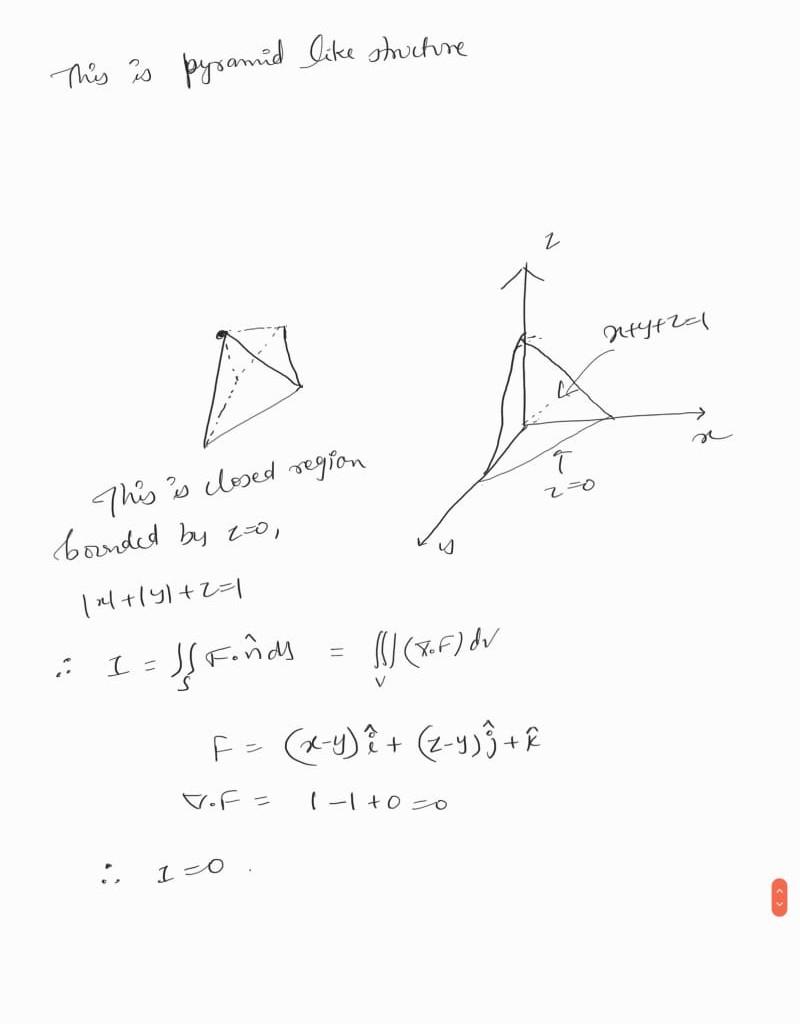 This is pyramid like structure
z
x+y+z=1
x
z=0
y
This is closed region
bounded by z=0,
|x|+|y|+z=1
∴ I = ∬_S F·n̂ ds = ∭_V (∇·F) dv
F = (x-y) î + (z-y) ĵ + k̂
∇·F = 1-1+0=0
∴ I=0.